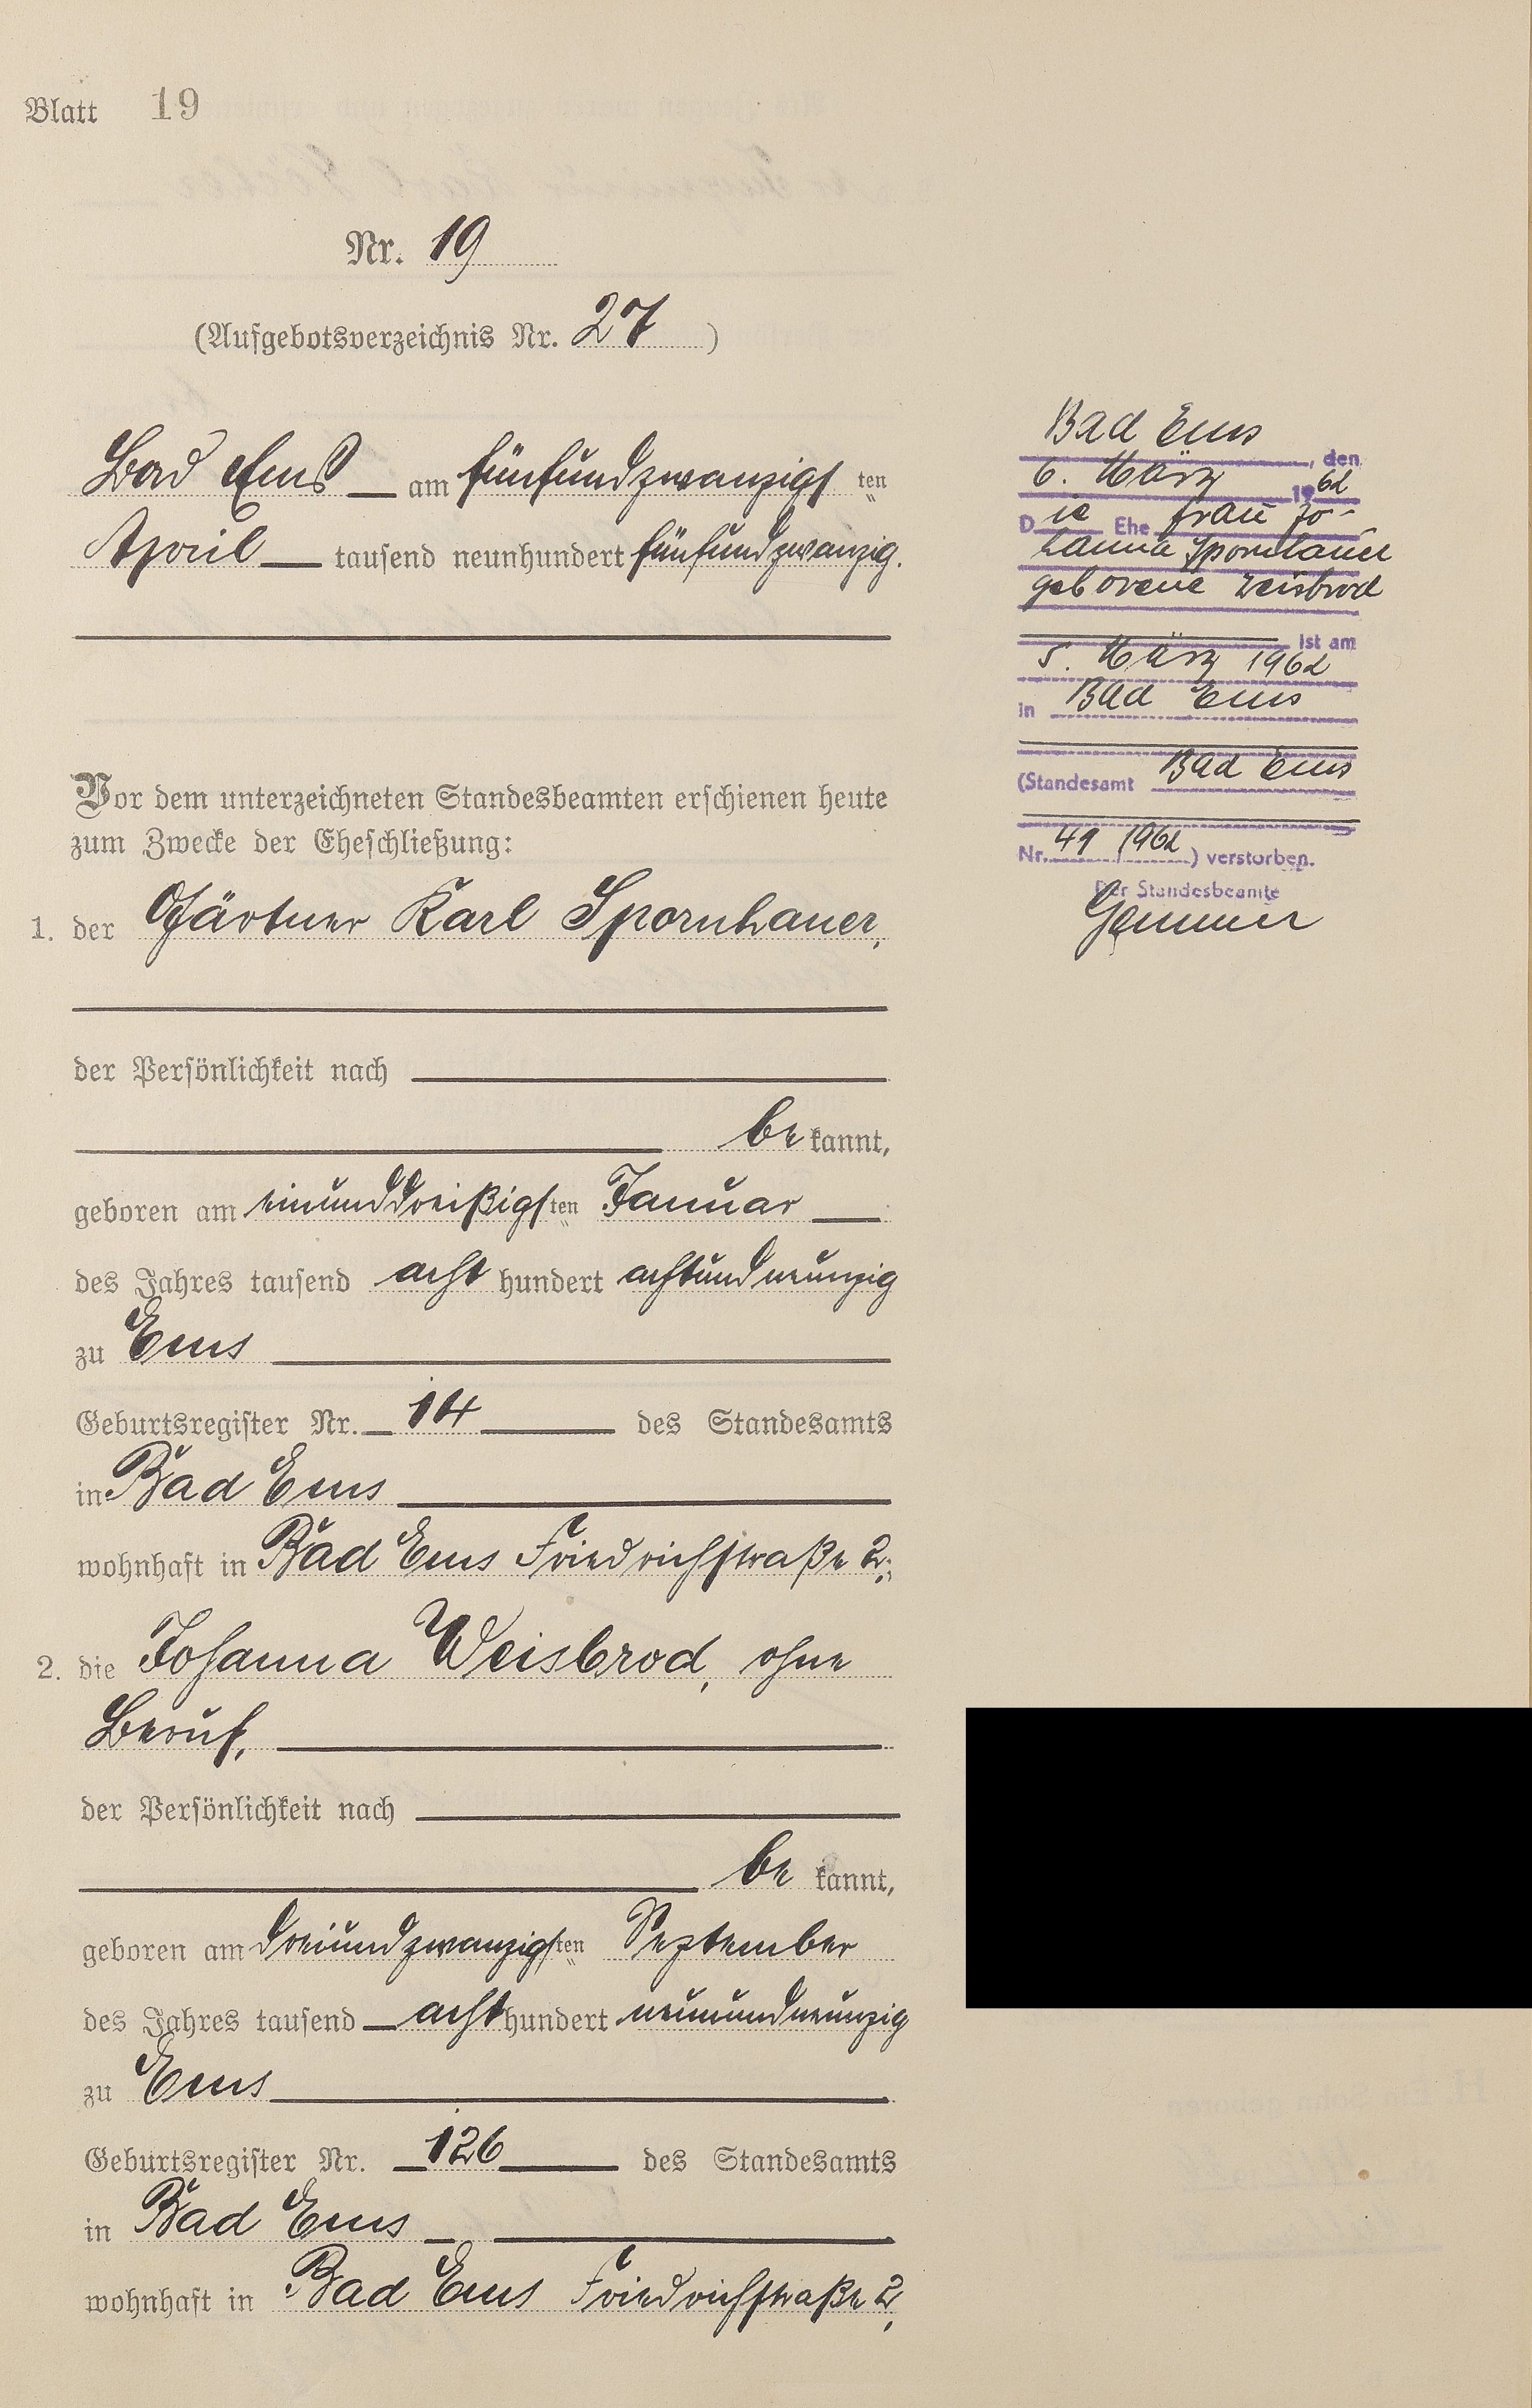 Blatt 19
Nr. 19
(Aufgebotsverzeichnis Nr. 27)
Bad Ems am fünfundzwanzigsten
April tausend neunhundert fünfundzwanzig.
Vor dem unterzeichneten Standesbeamten erschienen heute
zum Zwecke der Eheschließung:
1. der Gärtner Karl Spornhauer,
der Persönlichkeit nach
bekannt,
geboren am einunddreißigsten Januar
des Jahres tausend acht hundert achtundneunzig
zu Ems
Geburtsregister Nr. 14 des Standesamts
in Bad Ems
wohnhaft in Bad Ems Friedrichstraße 2;
2. die Johanna Weisbrod, ohne
Beruf,
der Persönlichkeit nach
bekannt,
geboren am dreiundzwanzigsten September
des Jahres tausend acht hundert neunundneunzig
zu Ems
Geburtsregister Nr. 126 des Standesamts
in Bad Ems
wohnhaft in Bad Ems Friedrichstraße 2,
Bad Ems
, den
6. März 1962
Die Ehefrau Jo-
hanna Spornhauer
geborene Weisbrod
ist am
5. März 1962
in Bad Ems
(Standesamt Bad Ems
Nr. 49/1962) verstorben.
Der Standesbeamte